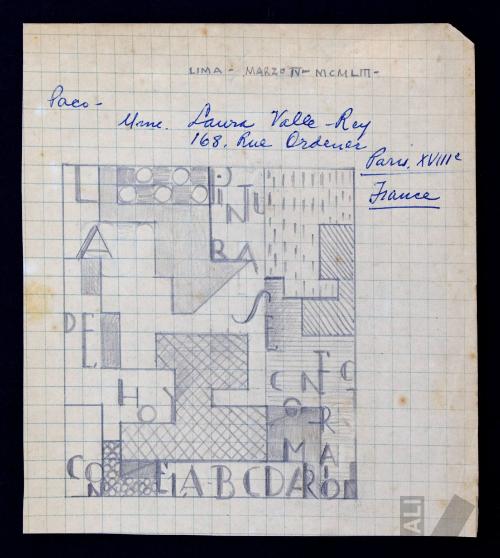 LIMA - MARZO IV - MCMLIII -
Paco -
Mme. Laura Valle-Rey
168, Rue Ordener
Paris, XVIIIe
France
LA
PINTU
RA
SE
DE
HOY
CON
EL A-B-C DARIO
ALI